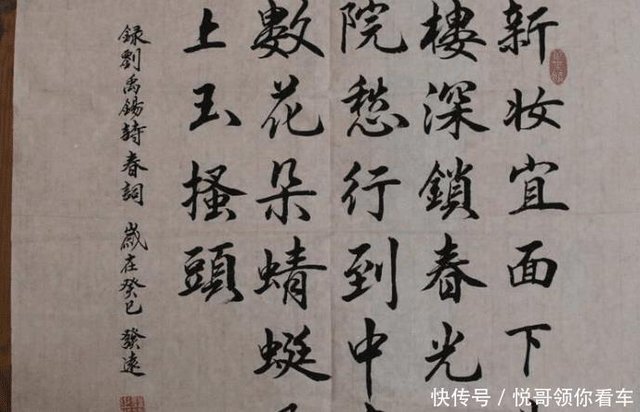 新妆宜面下
樓深鎖春光
院愁行到中
數花朵蜻蜓
上玉搔頭
録劉禹錫詩春詞 歲在癸巳 發遠
快传号 / 悦哥领你看车